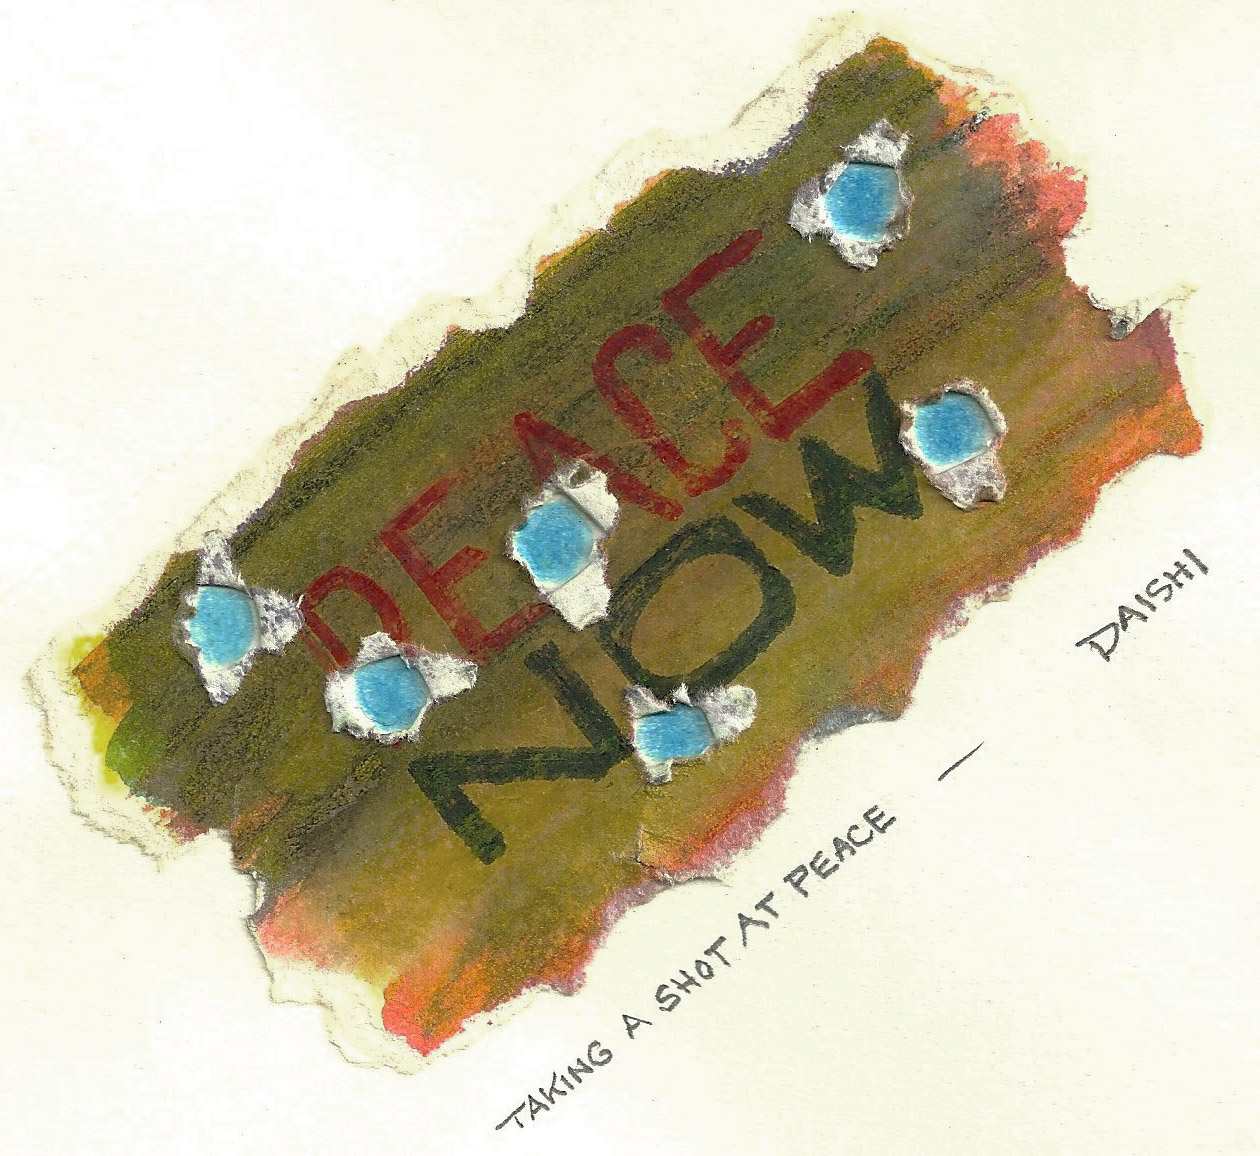 PEACE
NOW
TAKING A SHOT AT PEACE —
DAISHI